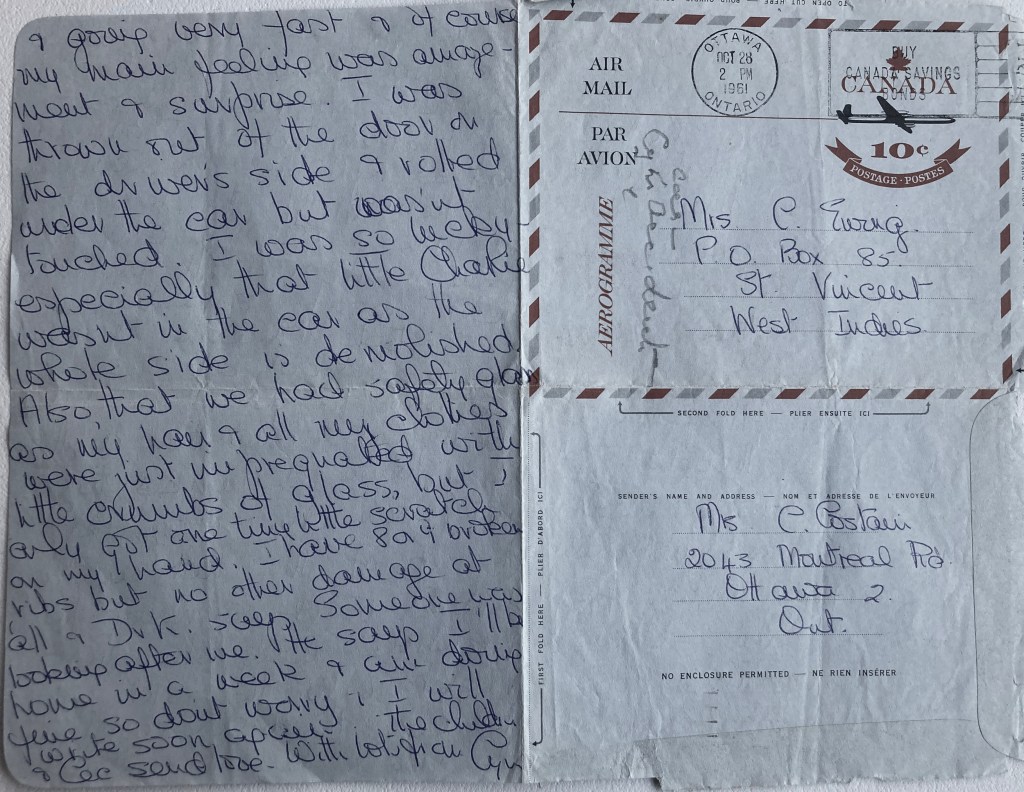 & going very fast & of course
my main feeling was amaze-
ment & surprise. I was
thrown out of the door on
the drivers side & rolled
under the car but wasnt
touched. I was so lucky
especially that little Charlie
wasnt in the car as the
whole side is demolished.
Also that we had safety glass
as my hair & all my clothes
were just impregnated with
little crumbs of glass, but I
only got one tiny little scratch
on my hand. I have 3 or 4 broken
ribs but no other damage at
all & Dr K. says Someone was
looking after me. He says I'll be
home in a week & am doing
fine so dont worry, I will
write soon again. The children
& Cec send love. With lots from Cyn
TO OPEN CUT HERE
AIR
MAIL
PAR
AVION
AEROGRAMME
OTTAWA
OCT 28
2 PM
1961
ONTARIO
BUY
CANADA SAVINGS
BONDS
CANADA
10¢
POSTAGE - POSTES
Car
Cyn Accident
Mrs C. Ewing.
P.O. Box 85.
St. Vincent
West Indies.
SECOND FOLD HERE — PLIER ENSUITE ICI
FIRST FOLD HERE — PLIER D'ABORD ICI
SENDER'S NAME AND ADDRESS — NOM ET ADRESSE DE L'ENVOYEUR
Mrs C. Costain
2043 Montreal Rd.
Ottawa 2.
Ont.
NO ENCLOSURE PERMITTED — NE RIEN INSÉRER